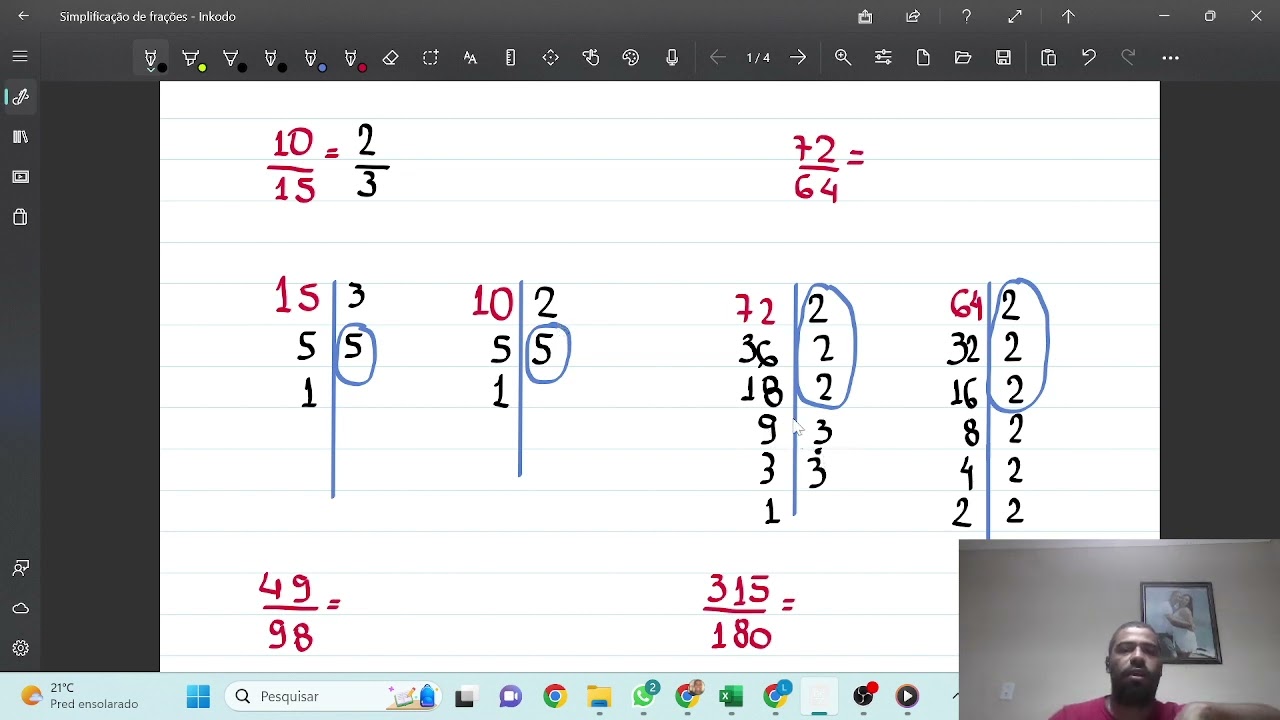 Simplificação de frações - Inkodo
1 / 4
10/15 = 2/3
72/64 =
15 | 3
5 | 5
1
10 | 2
5 | 5
1
72 | 2
36 | 2
18 | 2
9 | 3
3 | 3
1
64 | 2
32 | 2
16 | 2
8 | 2
4 | 2
2 | 2
49/98 =
315/180 =
21°C
Pred ensolarado
Pesquisar
2
L